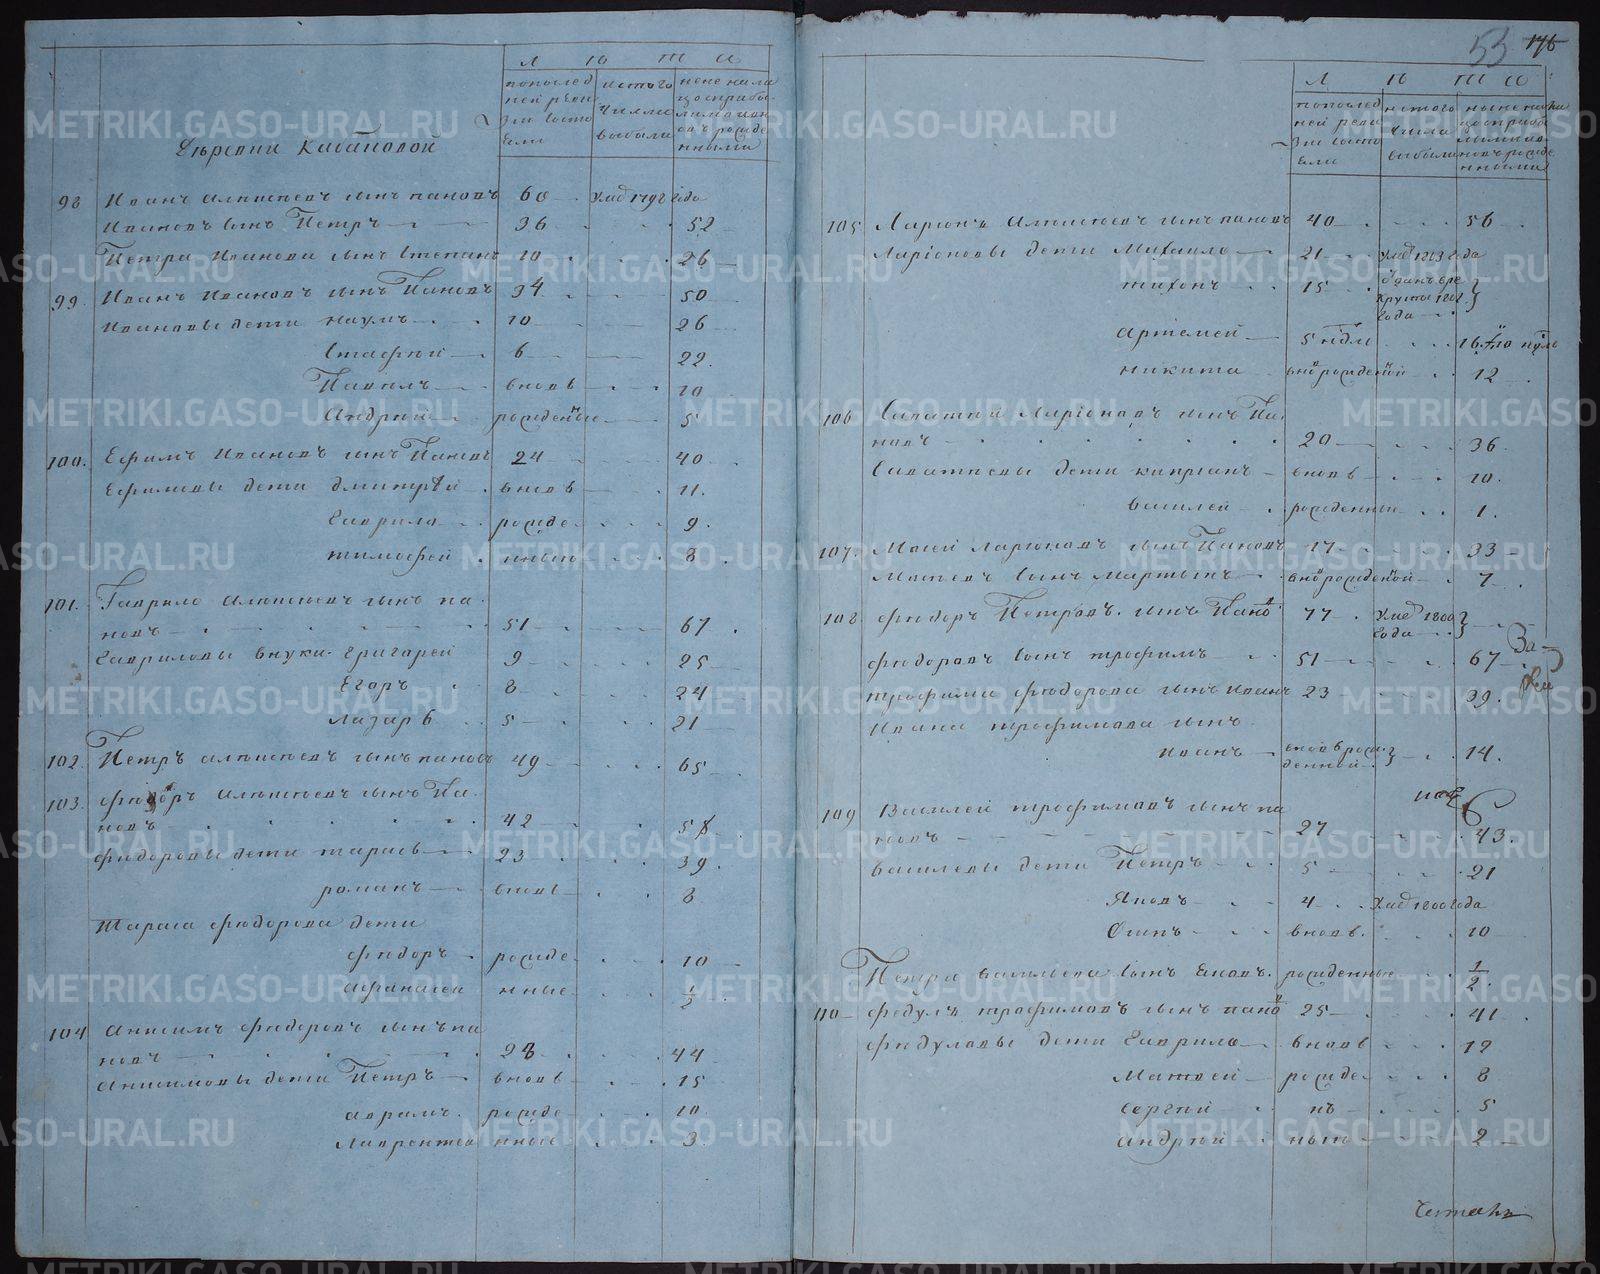 Л ѣ т а
попослед
ней реви
зии состо
яли
исъ того
числа
выбыли
ныне нали
цо сприбы
лыми и вн
овь рожде
нными
Деревни Кабановой
98 Иванъ Алексѣевъ сынъ Пановъ 60 Умеръ 1798 года
Ивановъ сынъ Петръ 36 52
Петра Иванова сынъ Степанъ 10 26
99. Иванъ Ивановъ сынъ Пановъ 34 50
Ивановы дети Наумъ 10 26
Стафѣй 6 22
Павелъ вновь 10
Андрей рожденные 5
100. Ефимъ Ивановъ сынъ Пановъ 24 40
Ефимовы дети Дмитрей вновь 11.
Гаврило рожде 9.
Тимофей нные 8
101. Гаврило Алексѣевъ сынъ Па
новъ 51 67
Гавриловы внуки Григорей 9 25
Егоръ 8 24
Лазарь 5 21
102. Петръ Алексѣевъ сынъ Пановъ 49 65
103. Федоръ Алексѣевъ сынъ Па
новъ 42 58
Федоровы дети Тарасъ 23 39
Романъ вновь 8
Тараса Федорова дети
Федоръ рожде 10
Афанасей нные 1/2
104 Анисимъ Федоровъ сынъ Па
новъ 28 44
Анисимовы дети Петръ вновь 15
Аврамъ рожде 10
Лаврентей нные 3
53 176
Л ѣ т а
попослед
ней реви
зии состо
яли
исъ того
числа
выбыли
ныне нали
цо сприбы
лыми и
новь рожде
нными
105 Ларионъ Алексѣевъ сынъ Пановъ 40 56
Ларіоновы дети Михайло 21 Умеръ 1813 года
Тихонъ 15 Отданъ вре
круты 1801
года
Артемей 5 недель 16
Никита вновь рожденной 12
106 Саватей Ларіоновъ сынъ Па
новъ 20 36
Саватеевы дети Киприанъ вновь 10
Василей рожденные 1.
107 Мосей Ларионовъ сынъ Пановъ 17 33
Мосеевъ сынъ Мартынъ вновь рожденной 7
108 Федоръ Петровъ сынъ Пановъ 77 Умеръ 1800
года
Федоровъ сынъ Трофимъ 51 67
Трофима Федорова сынъ Иванъ 23 39.
Ивана Трофимова сынъ
Иванъ вновь рож
денной 14.
109 Василей Трофимовъ сынъ Па
новъ 27 43.
Васильевы дети Петръ 5 21
Яковъ 4 Умеръ 1800 года
Осипъ вновь 10
Петра Васильева сынъ Яковъ рожденные 1/2
110 Федулъ Трофимовъ сынъ Пановъ 25 41
Федуловы дети Гаврило вновь 12
Матвей рожде 8
Сергей нъ 5
Андрей ные 2